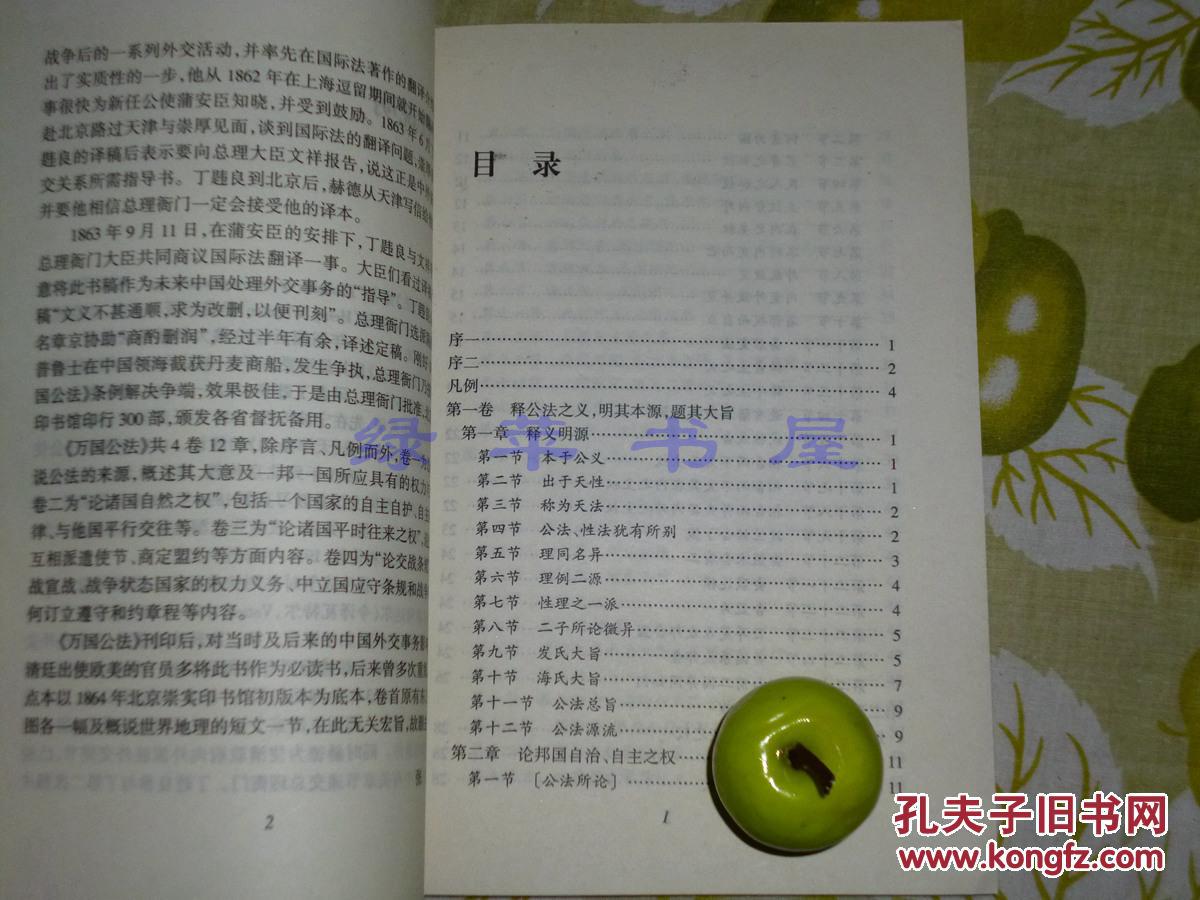 战争后的一系列外交活动，并率先在国际法著作的翻译
出了实质性的一步，他从1862年在上海逗留期间就开始
事很快为新任公使蒲安臣知晓，并受到鼓励。1863年6月
赴北京路过天津与崇厚见面，谈到国际法的翻译问题，崇厚
韪良的译稿后表示要向总理大臣文祥报告，说这正是中
交关系所需指导书。丁韪良到北京后，赫德从天津写信给
并要他相信总理衙门一定会接受他的译本。
1863年9月11日，在蒲安臣的安排下，丁韪良与文祥
总理衙门大臣共同商议国际法翻译一事。大臣们看过译
意将此书稿作为未来中国处理外交事务的“指导”。丁韪
稿“文义不甚通顺，求为改删，以便刊刻”。总理衙门选派
名章京协助“商酌删润”，经过半年有余，译述定稿。刚好
普鲁士在中国领海截获丹麦商船，发生争执，总理衙门乃
国公法》条例解决争端，效果极佳，于是由总理衙门批准，
印书馆印行300部，颁发各省督抚备用。
《万国公法》共4卷12章，除序言、凡例而外，卷一
说公法的来源，概述其大意及一邦一国所应具有的权力
卷二为“论诸国自然之权”，包括一个国家的自主自护、自主
律、与他国平行交往等。卷三为“论诸国平时往来之权”，
互相派遣使节、商定盟约等方面内容。卷四为“论交战条
战宣战、战争状态国家的权力义务、中立国应守条规和战
何订立遵守和约章程等内容。
《万国公法》刊印后，对当时及后来的中国外交事务
清廷出使欧美的官员多将此书作为必读书，后来曾多次重
点本以1864年北京崇实印书馆初版本为底本，卷首原有东
图各一幅及概说世界地理的短文一节，在此无关宏旨，故
张
2
目 录
序一 1
序二 2
凡例 4
第一卷 释公法之义，明其本源，题其大旨
第一章 释义明源 1
第一节 本于公义 1
第二节 出于天性 1
第三节 称为天法 2
第四节 公法、性法犹有所别 2
第五节 理同名异 3
第六节 理例二源 4
第七节 性理之一派 4
第八节 二子所论微异 5
第九节 发氏大旨 5
第十节 海氏大旨 7
第十一节 公法总旨 9
第十二节 公法源流 9
第二章 论邦国自治、自主之权 11
第一节 〔公法所论〕 11
1
绿苹书屋
孔夫子旧书网
www.kongfz.com